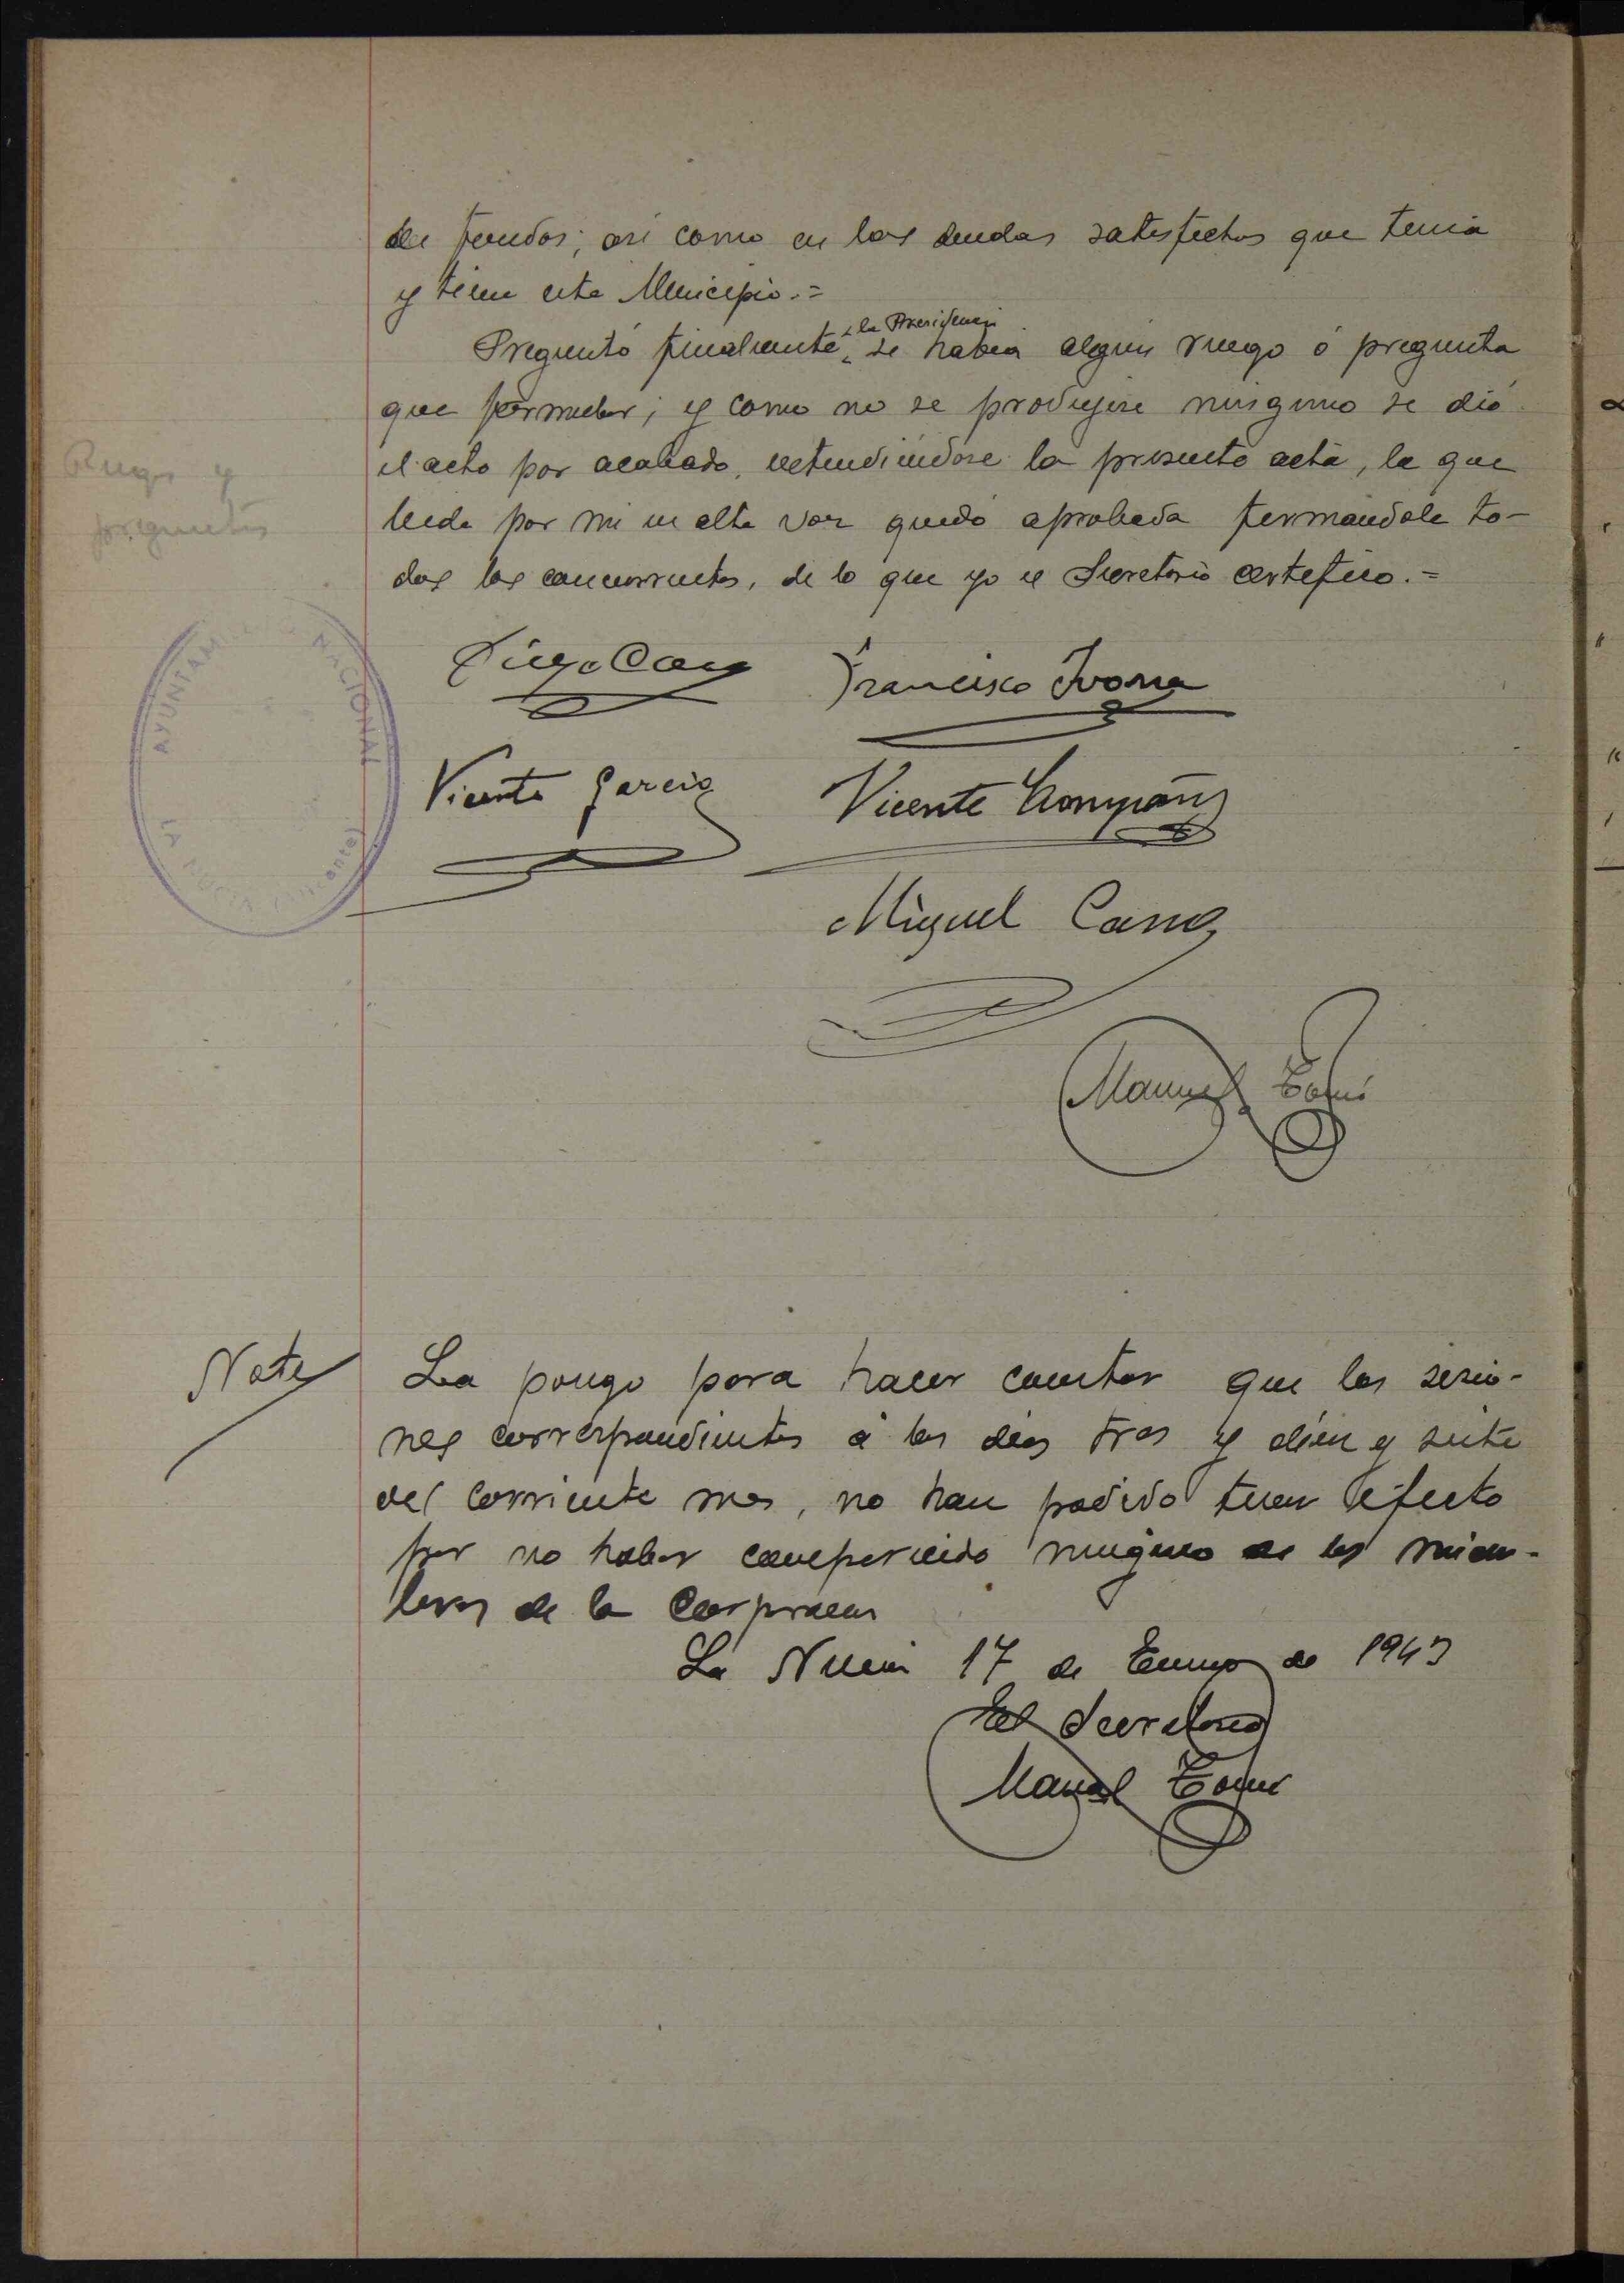 de fondos; asi como en las deudas satisfechas que tenia
y tiene este Municipio.=
la Presidencia
Preguntó finalmente, se habia algún ruego ó pregunta
que formular; y como no se produjese ninguno se dió
el acto por acabado, extendiéndose la presente acta, la que
Ruegos y
leida por mi en alta voz quedó aprobada firmándola to-
preguntas
dos los concurrentes, de lo que yo el Secretario certifico.=
AYUNTAM NACIONAL
LA NUCIA (Alicante)
Francisco Ivorra
Vicente Garcia
Vicente Llompart
Miguel Cano
Manuel Tomé
Nota
La pongo para hacer constar que las sesio-
nes correspondientes á los dias tres y diez y siete
del corriente mes, no han podido tener efecto
por no haber comparecido ninguno de los miem-
bros de la Corporacion
La Nucia 17 de Enero de 1943
El Secretario
Manuel Tomé